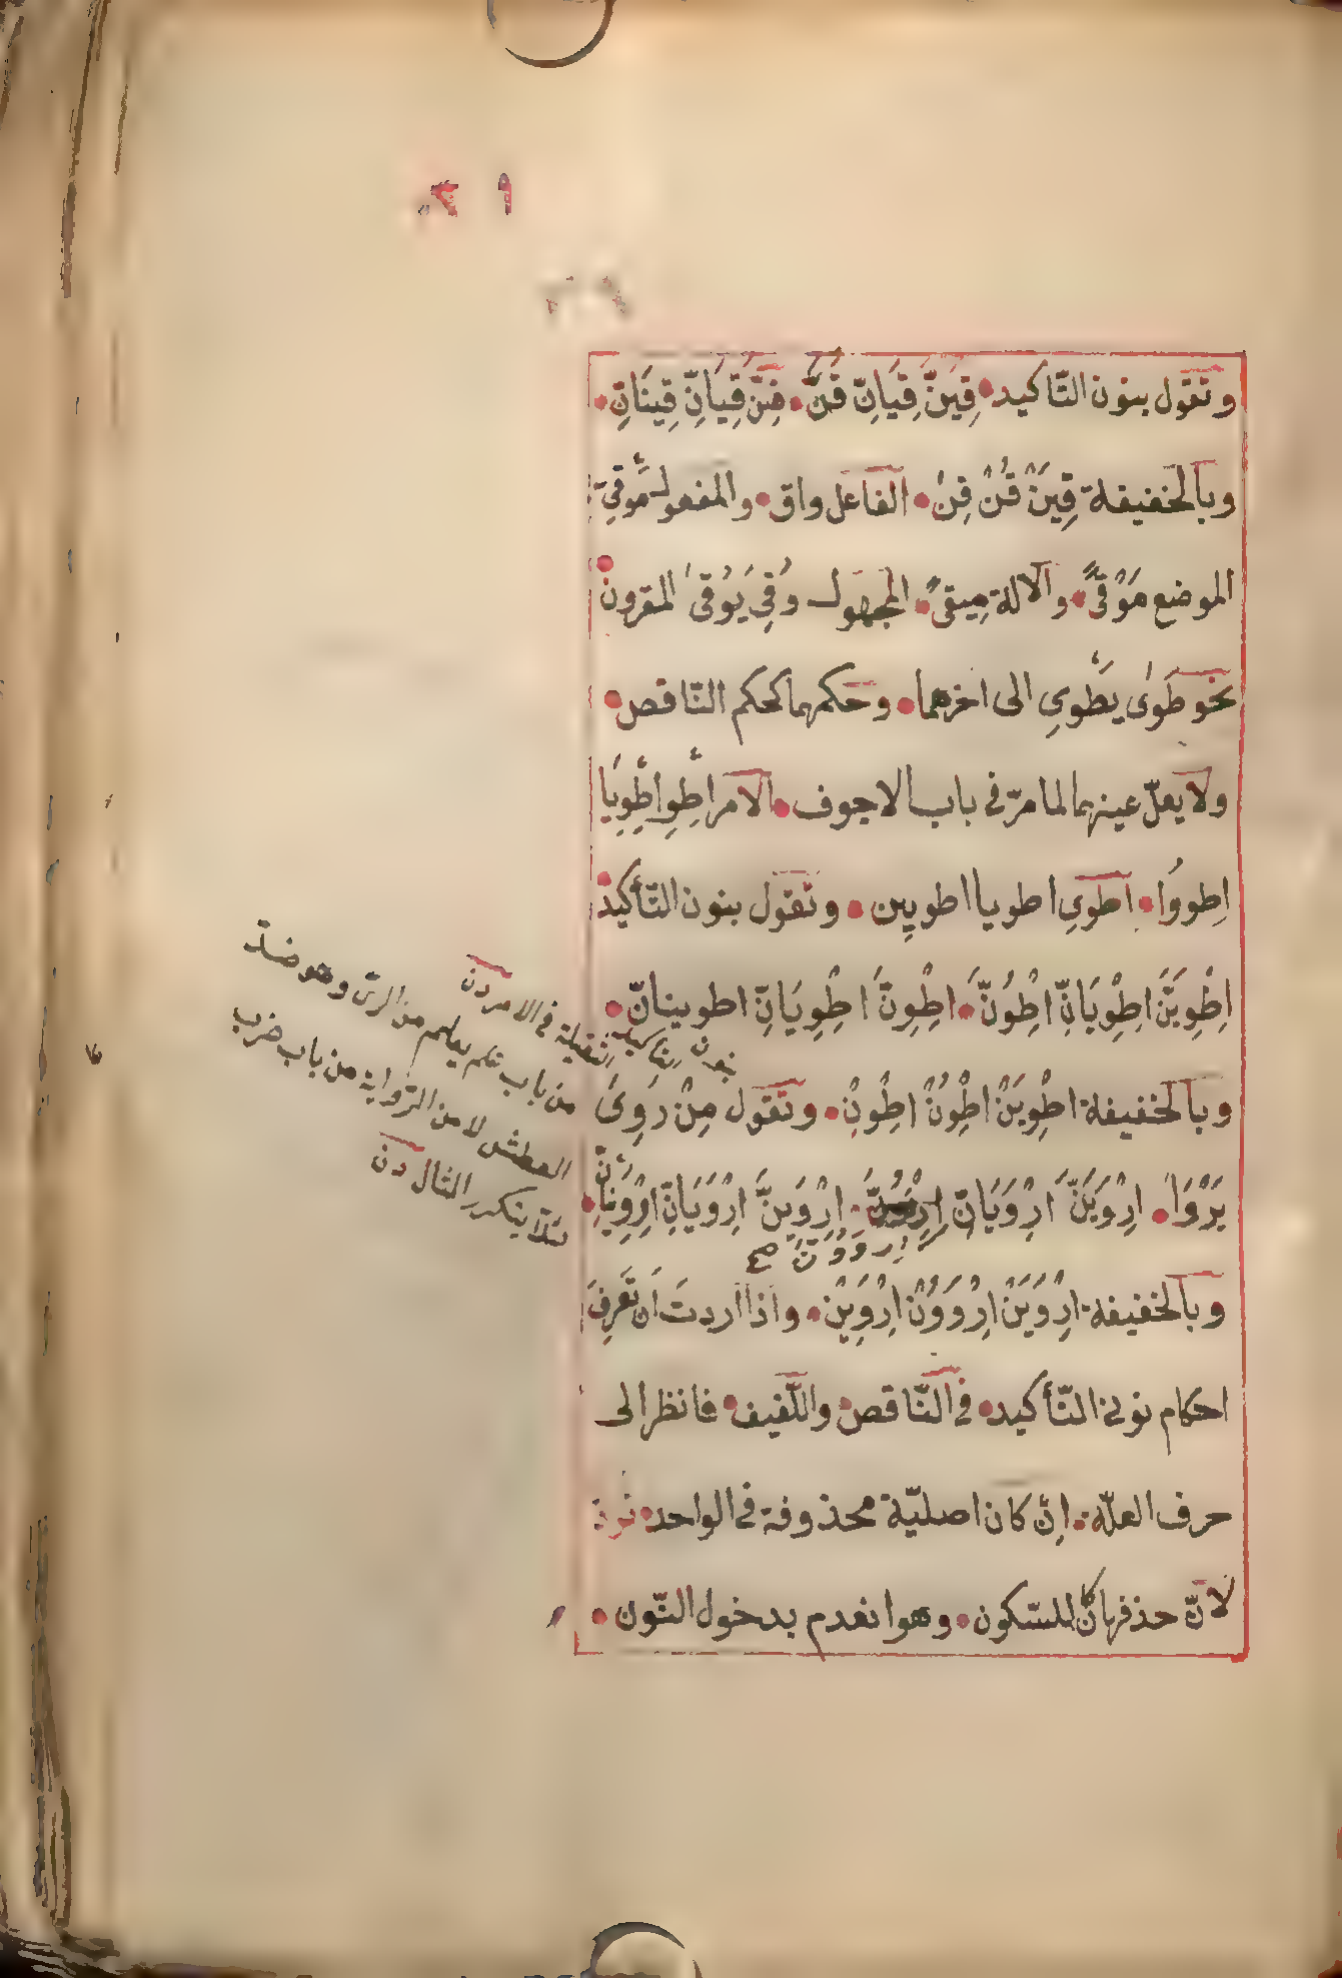 وتقول بنون التّاكيد قِيَنَّ قِيَانِّ قُنَّ قِنَّ قِيَانِّ قِينَانِّ
وبالخفيفة قِيَنْ قُنْ قِنْ الفاعل واق والمفعول مَوقِيّ
الموضع مَوْقًى والآلة مِيقىً المجهول وُقِيَ يُوقىٰ المقرون
نحو طَوىٰ يَطْوِى الى اخرهما وحكمهما كحكم النّاقص
ولا يعلّ عينهما لما مرّ فى باب الاجوف الامر اِطْوِ اِطْوِيَا
اِطووُا اطوِى اطويا اطوِين وتقول بنون التّأكيد
اِطْوِيَنَّ اِطْوِيَانِّ اطْوُنَّ اِطْوِنَّ اطْوِيَانِّ اطوينانّ
وبالخفيفة اطْوِيَنْ اطْوُنْ اطْوِنْ وتقول مِنْ رَوِىَ
يَرْوَا اِرْوَيَنَّ اِرْوَيَانّ اِرْوَوُنَّ اِرْوَيِنَّ اِرْوَيَانِّ اِرْوَيْنَانِّ
اِروَوُنّ صح
وبالخفيفة اِرْوَيَنْ اِرْوَوُنْ اِرْوَيِنْ واذا اردتَ اَن تَعرِفَ
احكام نونى التّأكيد فى النّاقص واللّفيف فانظر الى
حرف العلّة اِنْ كان اصليّة محذوفة فى الواحد ترد
لانّ حذفها كان للسّكون وهو انعدم بدخول النّون
بنون التاكيد الثقيلة فى الامر دن
من باب علم يعلم من الرىّ وهو ضد
العطش لا من الرّواية من باب ضرب
لئلّا يتكرر المثال دن